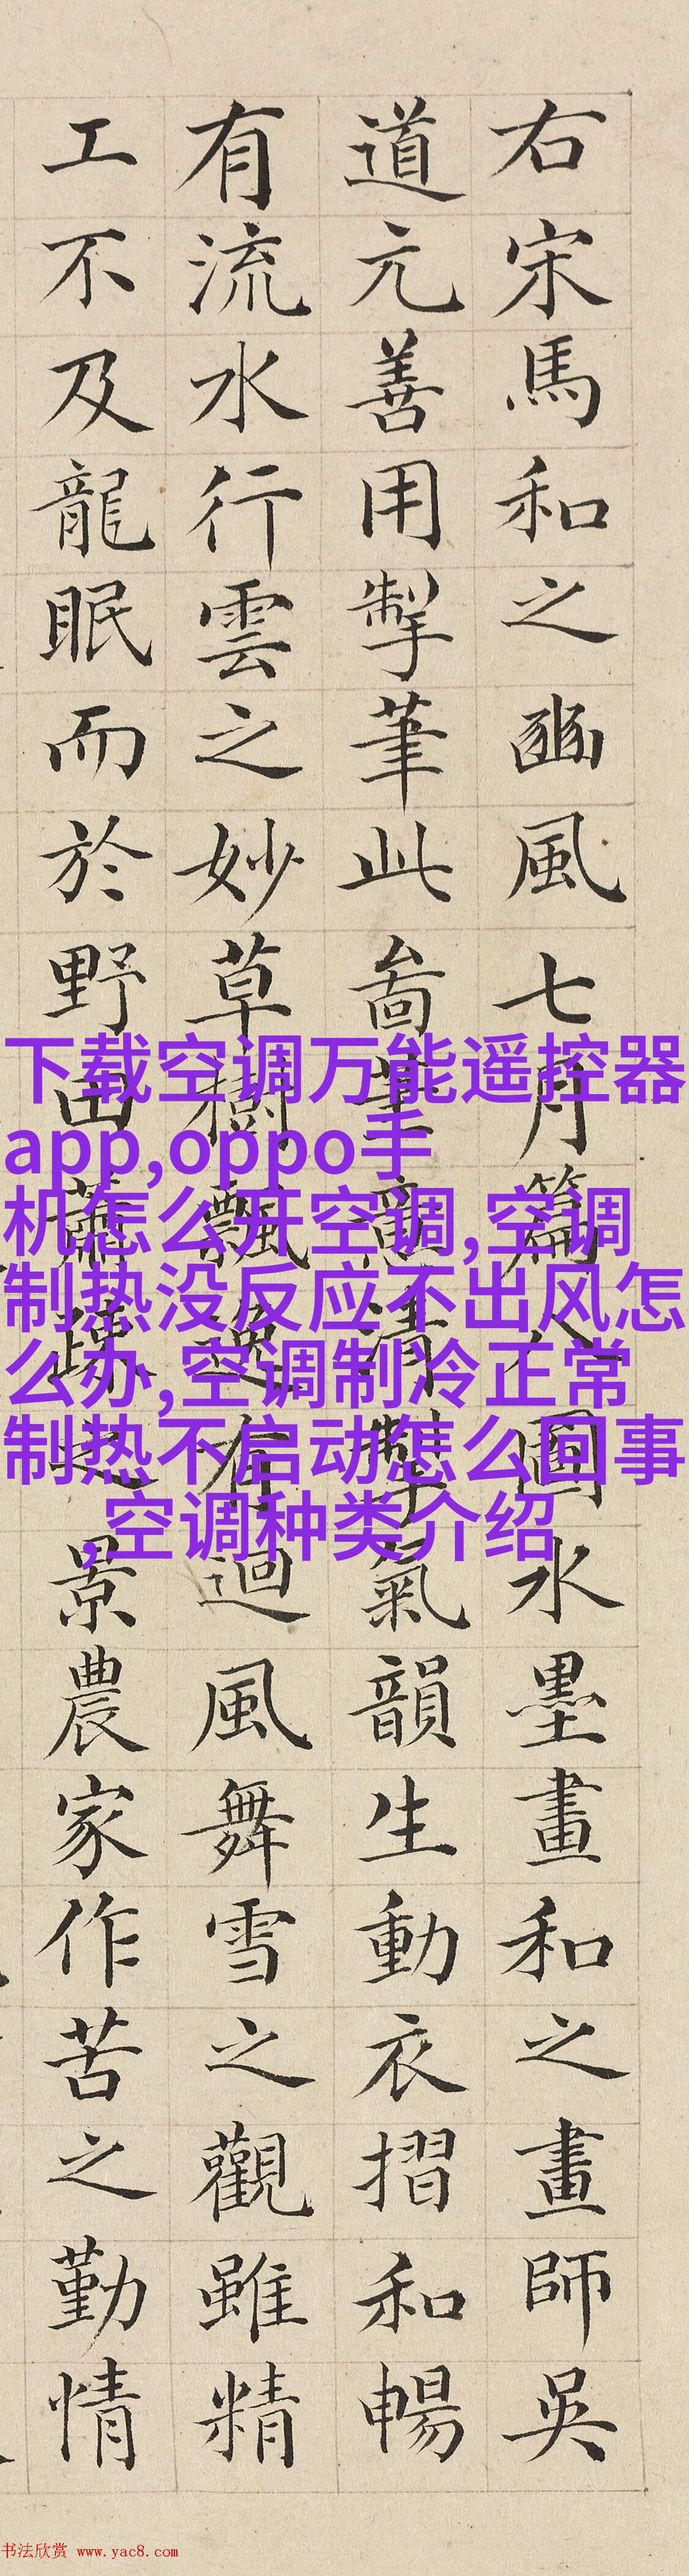 右宋馬和之豳風七月篇圖水墨畫和之畫師吳
道元善用掣筆此啚筆清氣韻生動衣摺和暢
有流水行雲之妙草樹飄逸有迴風舞雪之觀雖精
工不及龍眠而於野田蕭疎之景農家作苦之勤情
下载空调万能遥控器
app,oppo手
机怎么开空调,空调
制热没反应不出风怎
么办,空调制冷正常
制热不启动怎么回事
,空调种类介绍
书法欣赏 www.yac8.com